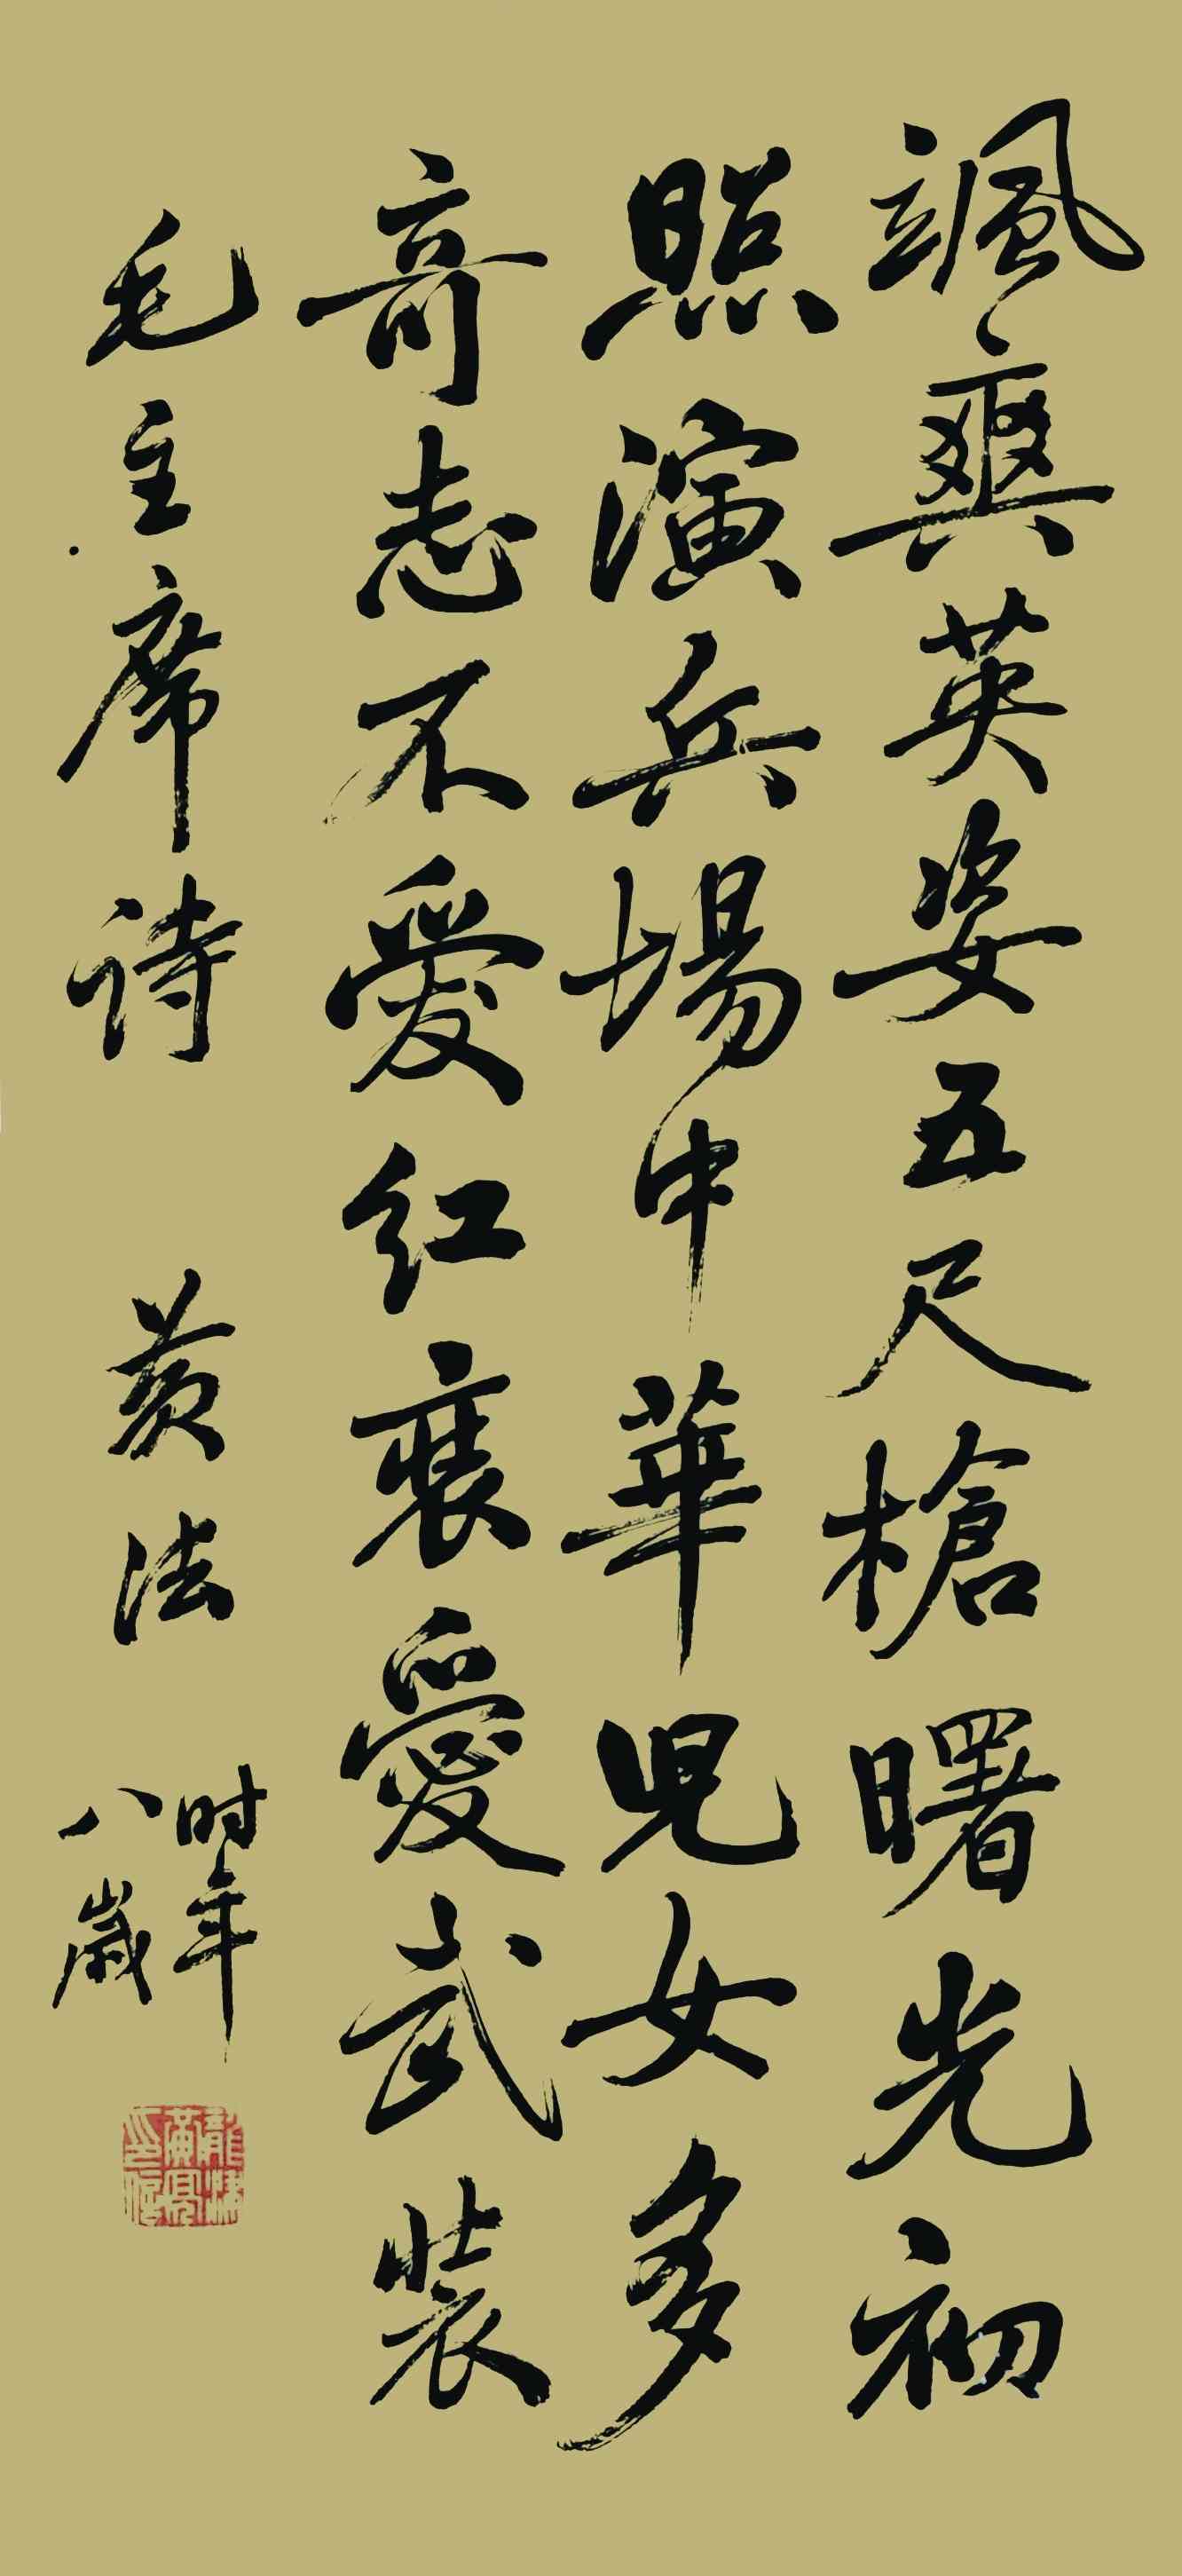 颯爽英姿五尺槍曙光初
照演兵場中華兒女多
奇志不愛红裝愛武裝
毛主席诗 黄法
时年
八歲